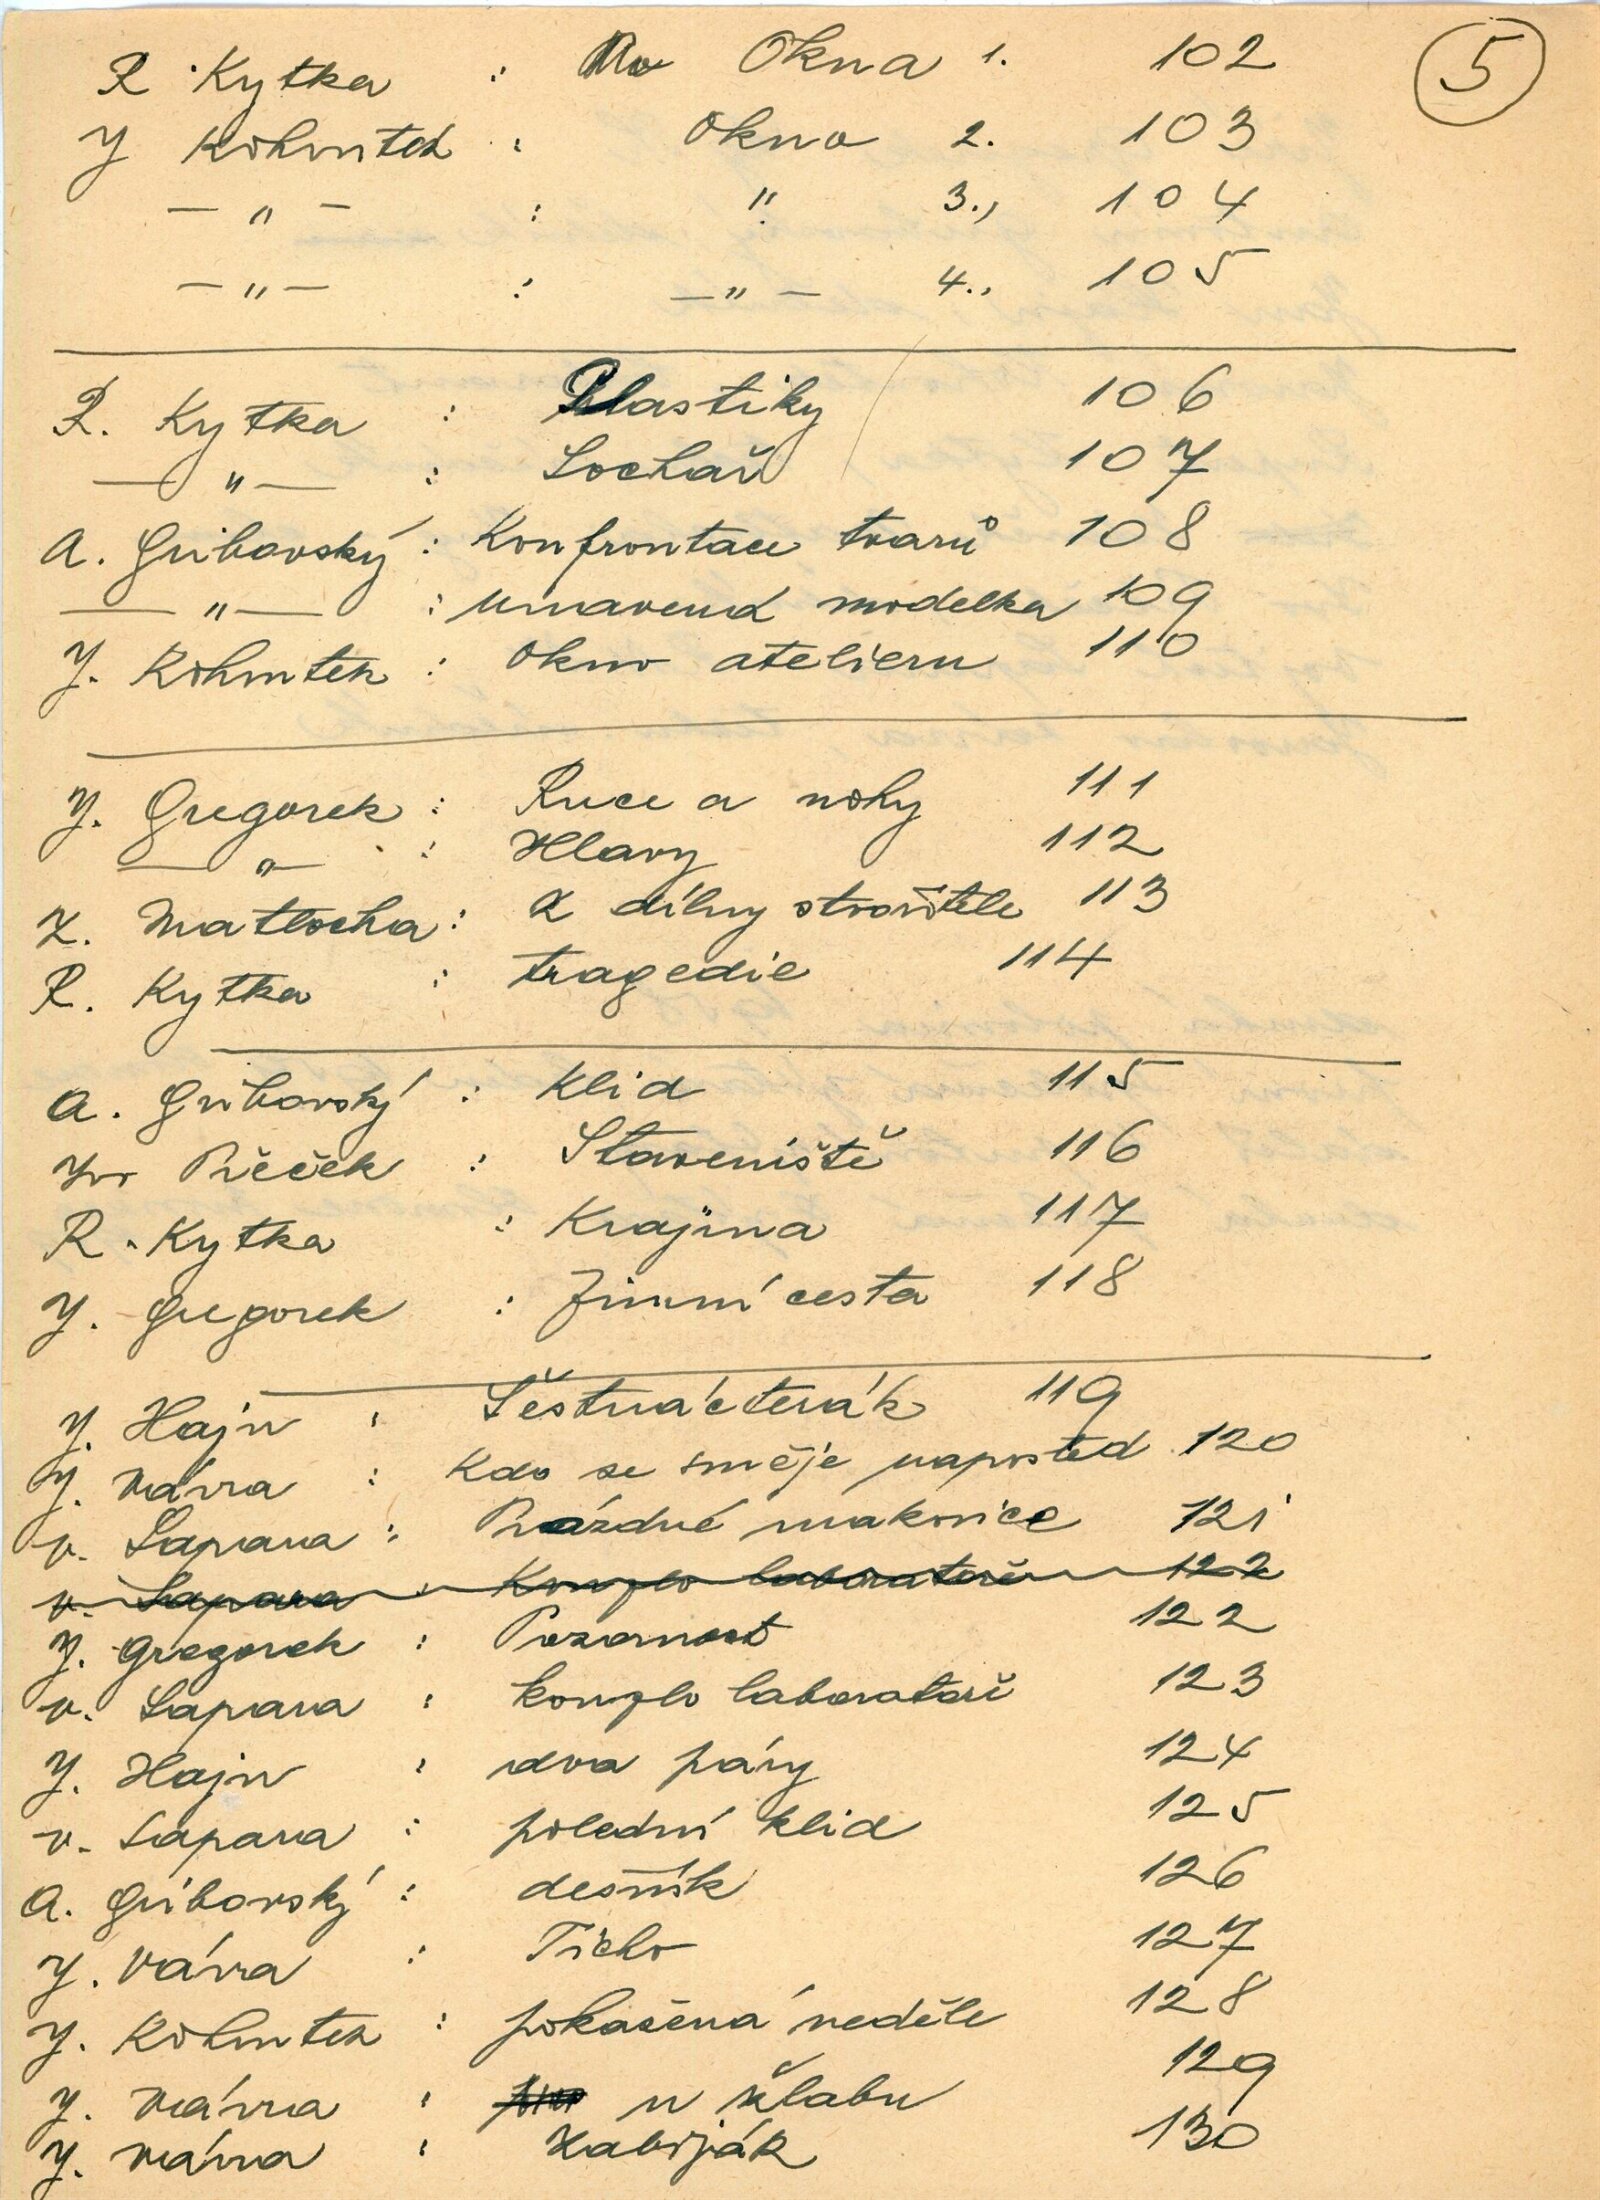 5
R. Kytka : Okna 1. 102
J Kohoutek : Okno 2. 103
— " — : " 3., 104
— " — : — " — 4., 105
R. Kytka : Plastiky 106
— " — : Sochař 107
A. Gribovský : Konfrontace tvarů 108
— " — : unavená modelka 109
J. Kohoutek : okno atelieru 110
J. Gregorek : Ruce a nohy 111
— " — : Hlavy 112
Z. Matlocha : Z dílny stvořitele 113
R. Kytka : tragedie 114
A. Gribovský : Klid 115
Ivo Přeček : Staveniště 116
R. Kytka : Krajina 117
J. Gregorek : Zimní cesta 118
J. Hajn : Šestnácterák 119
J. Vávra : Kdo se směje naposled 120
V. Sapara : Prázdné makovice 121
V. Sapara : Kouzlo laboratoře 122
J. Gregorek : Pozornost 122
V. Sapara : kouzlo laboratoří 123
J. Hajn : dva páry 124
V. Sapara : polední klid 125
A. Gribovský : deštník 126
J. Vávra : Ticho 127
J. Kohoutek : pokažená neděle 128
J. Vávra : u žlabu 129
J. Vávra : Zabiják 130